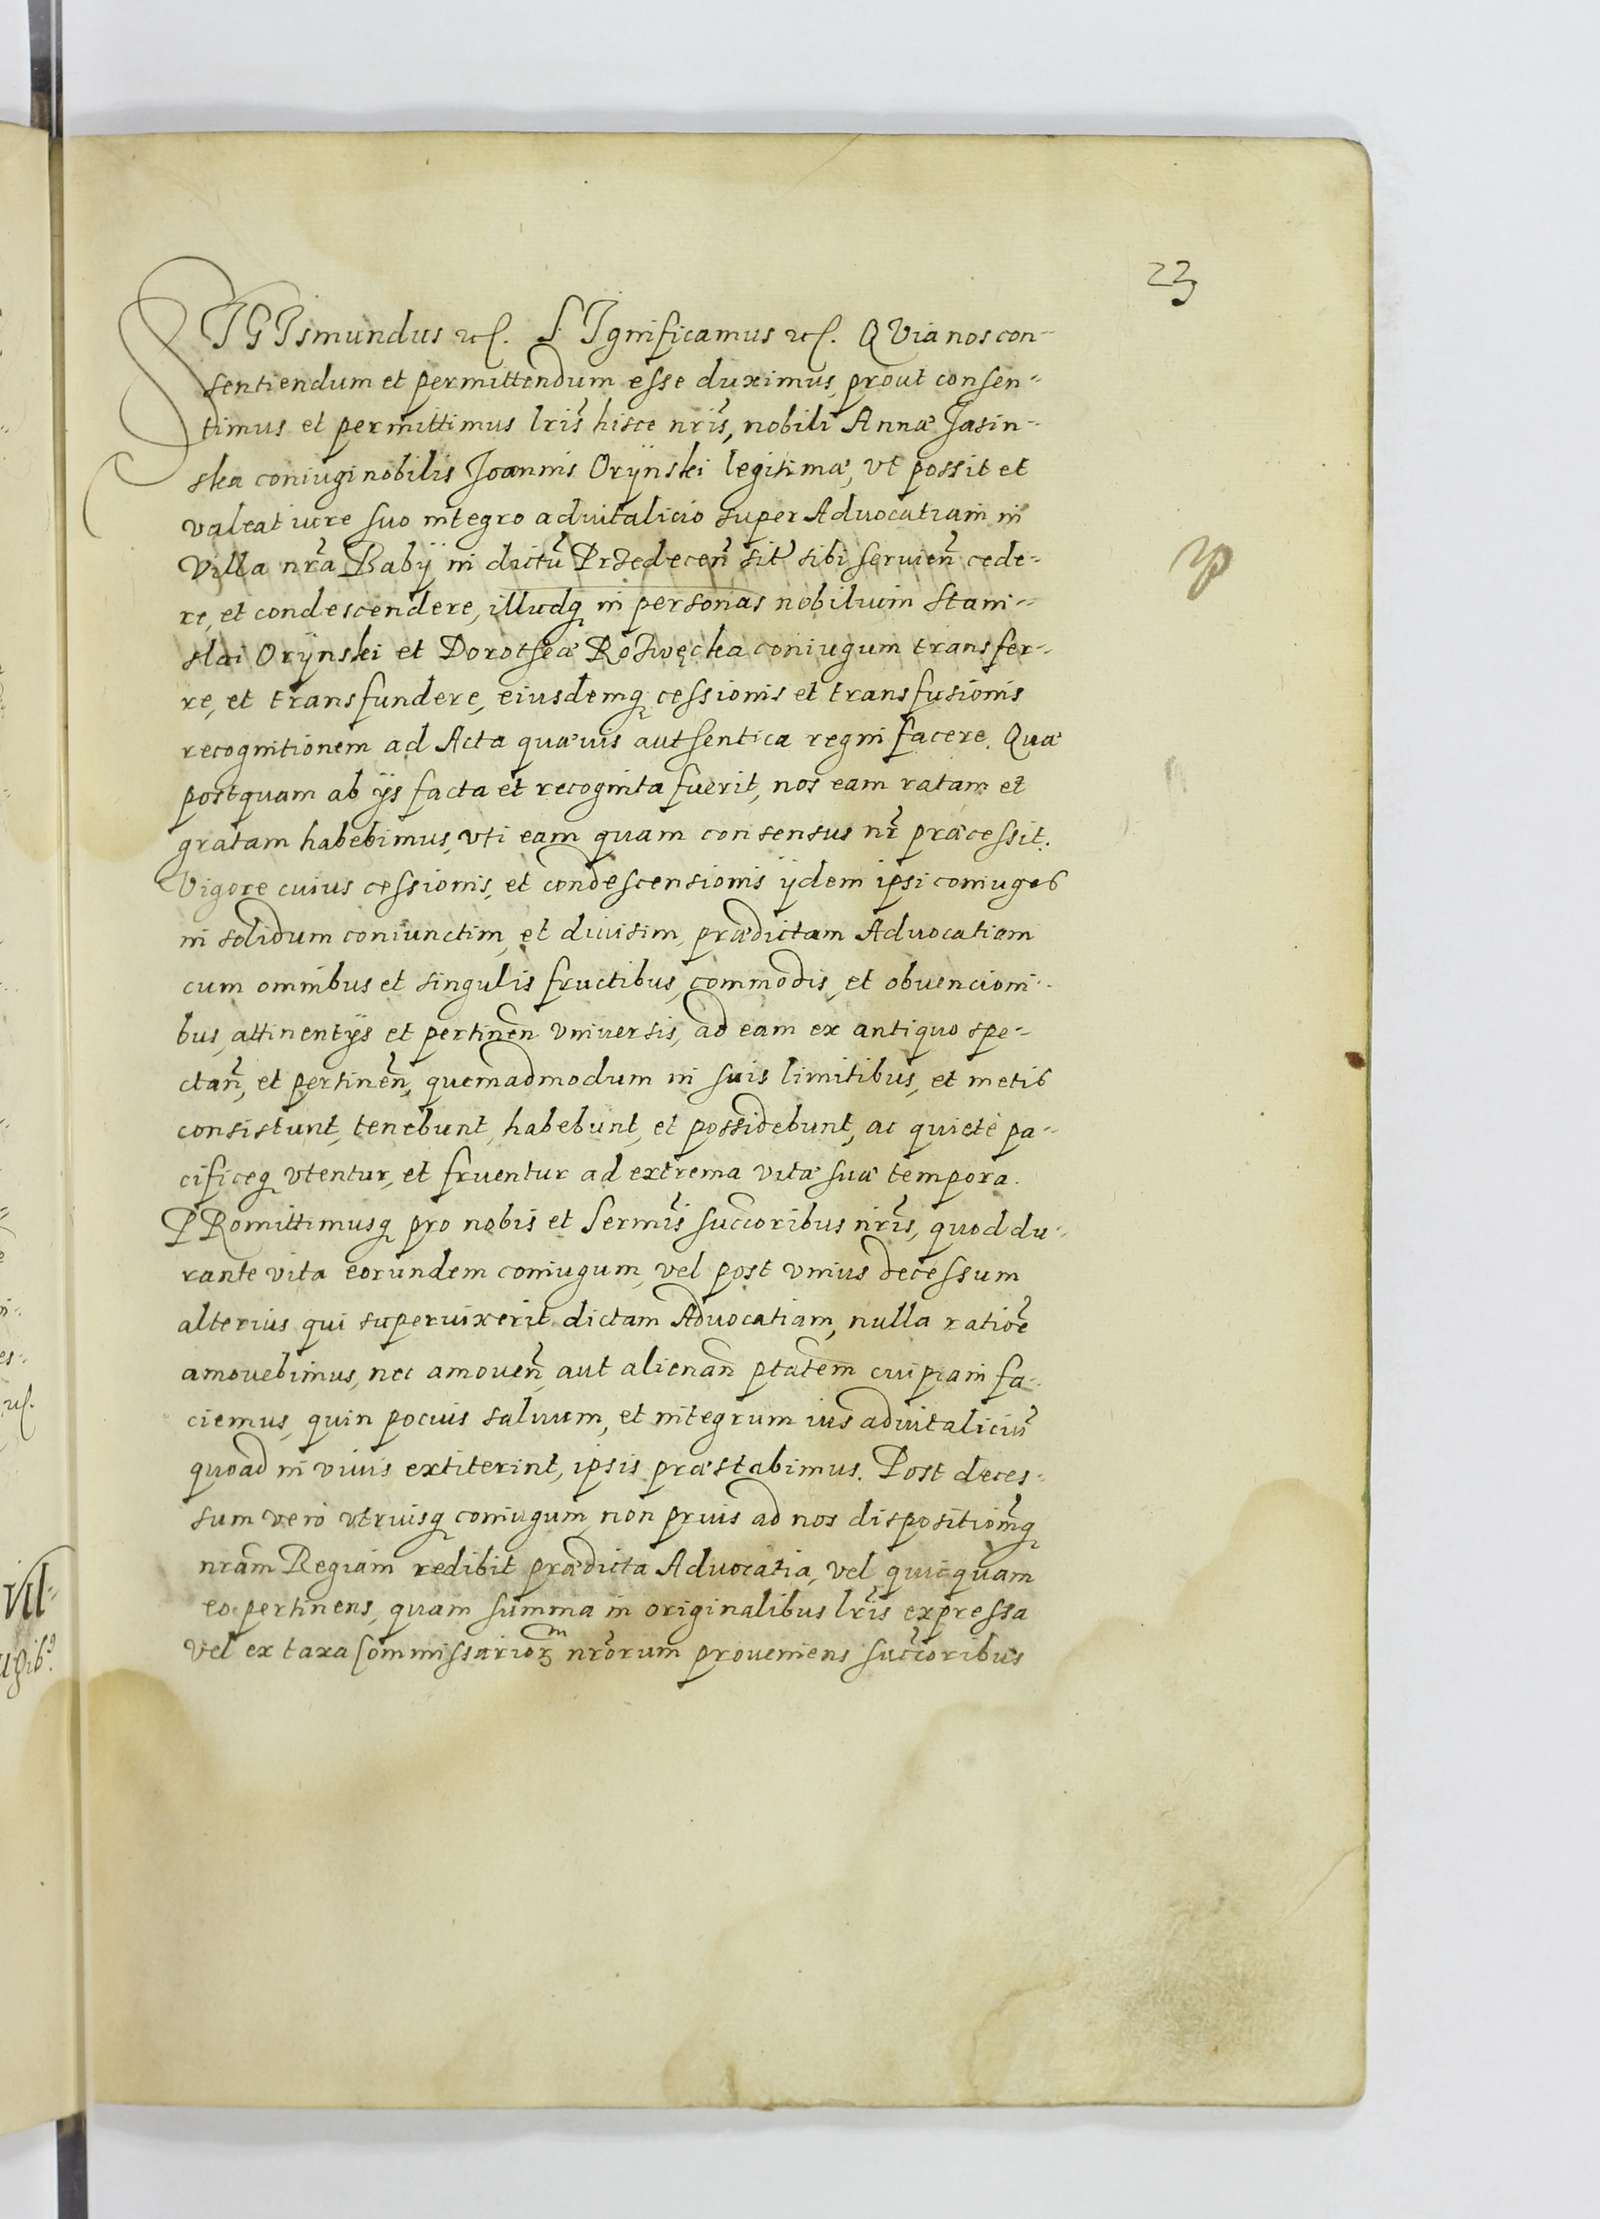 23
SIGIsmundus etc. SIgnificamus etc. QVia nos con-
sentiendum et permittendum esse duximus, prout consen-
timus et permittimus lris hisce nris, nobili Annæ Jasin-
ska coniugi nobilis Joannis Orÿnski legitimæ, vt possit et
valeat iure suo integro aduitalicio super Aduocatiam in
Villa nra Babÿ in dictu Przedecen sit sibi seruien cede-
re, et condescendere, illudq in personas nobilium Stani-
slai Orÿnski et Dorotheæ Rozwęcka coniugum transfer-
re, et transfundere, eiusdemq cessionis et transfusionis
recognitionem ad Acta quæuis authentica regni facere. Quæ
postquam ab ÿs facta et recognita fuerit, nos eam ratam et
gratam habebimus, vti eam quam consensus nr præcessit.
Vigore cuius cessionis, et condescensionis ÿdem ipsi coniuges
in solidum coniunctim, et diuisim, prædictam Aduocatiam
cum omnibus et singulis fructibus, commodis, et obuencioni-
bus, attinentÿs et pertinen vniuersis, ad eam ex antiquo spe-
ctan, et pertinen, quemadmodum in suis limitibus, et metis
consistunt, tenebunt, habebunt, et possidebunt, ac quietè pa-
cificeq vtentur, et fruentur ad extrema vitæ suæ tempora.
PRomittimusq pro nobis et Sermis succoribus nris, quod du-
rante vita eorundem coniugum, vel post vnius decessum
alterius qui superuixerit dictam Aduocatiam, nulla ratioe
amouebimus, nec amouen, aut alienan ptatem cuipiam fa-
ciemus, quin pocius saluum, et integrum ius aduitaliciu
quoad in viuis extiterint, ipsis præstabimus. Post deces-
sum vero vtriusq coniugum, non prius ad nos dispositiomq
nram Regiam redibit prædicta Aduocatia, vel quicquam
eo pertinens, quam summa in originalibus lris expressa
vel ex taxa Commissariorm nrorum proueniens succoribus